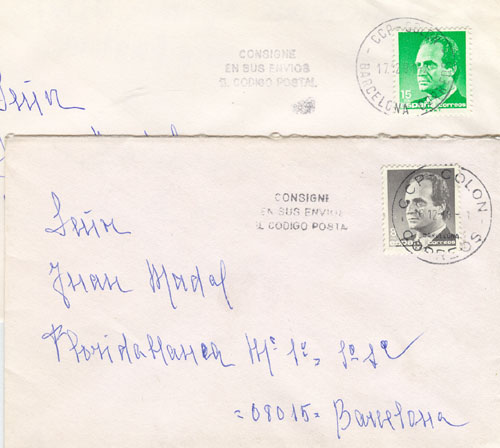 CONSIGNE
EN SUS ENVIOS
EL CODIGO POSTAL
CCP-COLON
BARCELONA
15
correos
Señor
CONSIGNE
EN SUS ENVIOS
EL CODIGO POSTAL
CCP-COLON
12
CORREOS
correos
Señor
Juan Nadal
Floridablanca Nº 1º, 5º 1ª
=08015= Barcelona